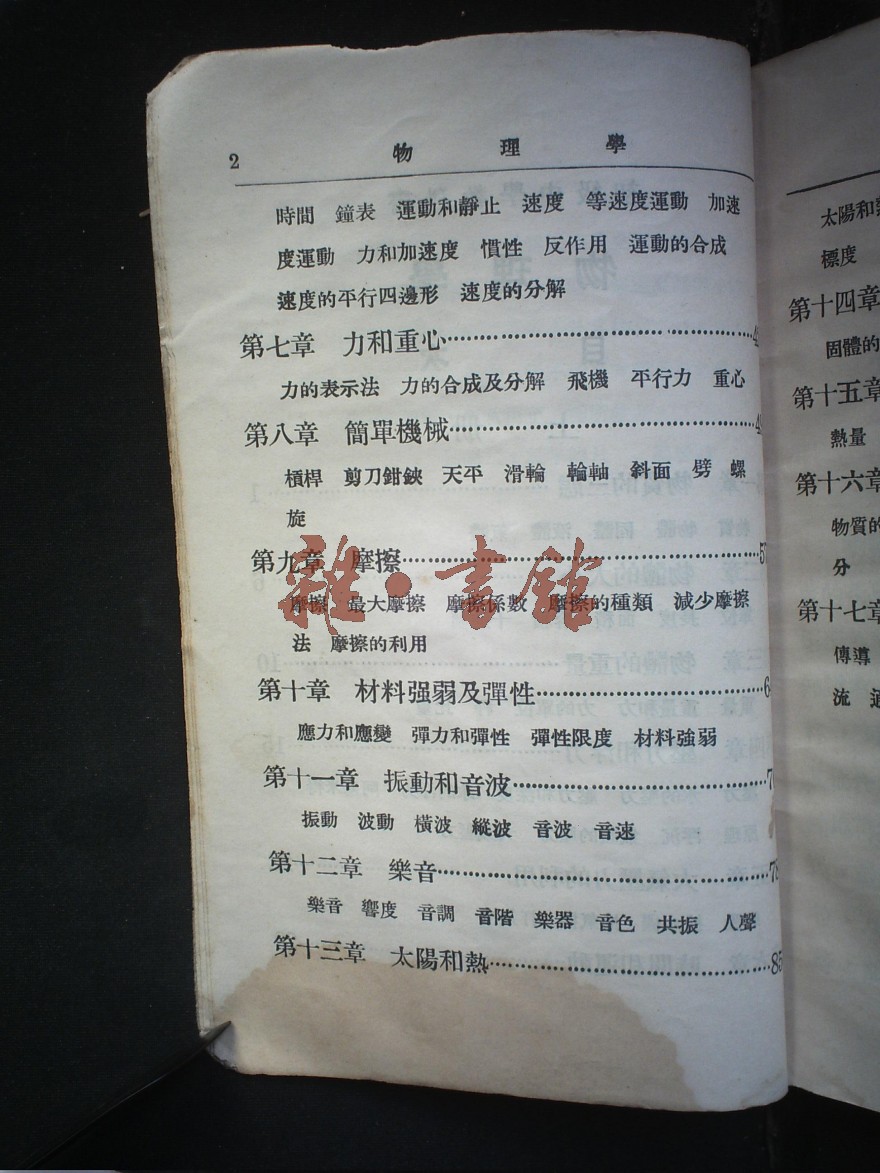 2 物理學
時間 鐘表 運動和靜止 速度 等速度運動 加速
度運動 力和加速度 慣性 反作用 運動的合成
速度的平行四邊形 速度的分解
第七章 力和重心
力的表示法 力的合成及分解 飛機 平行力 重心
第八章 簡單機械
槓桿 剪刀鉗鋏 天平 滑輪 輪軸 斜面 劈 螺
旋
第九章 摩擦 57
摩擦 最大摩擦 摩擦係數 摩擦的種類 減少摩擦
法 摩擦的利用
第十章 材料强弱及彈性
應力和應變 彈力和彈性 彈性限度 材料強弱
第十一章 振動和音波
振動 波動 橫波 縱波 音波 音速
第十二章 樂音 78
樂音 響度 音調 音階 樂器 音色 共振 人聲
第十三章 太陽和熱 85
雜·書館
太陽和熱
標度
第十四章
固體的
第十五章
熱量
第十六章
物質的
分
第十七章
傳導
流